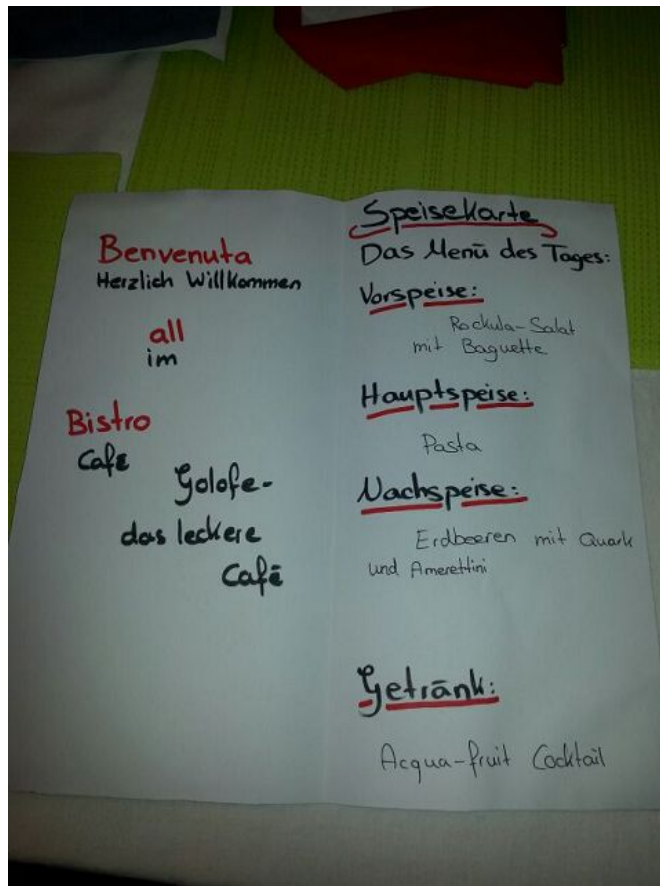 Benvenuta
Herzlich Willkommen
all
im
Bistro
Café
Golofe-
das leckere
Café
Speisekarte
Das Menü des Tages:
Vorspeise:
Rockula-Salat
mit Baguette
Hauptspeise:
Pasta
Nachspeise:
Erdbeeren mit Quark
und Amerettini
Getränk:
Acqua-fruit Cocktail